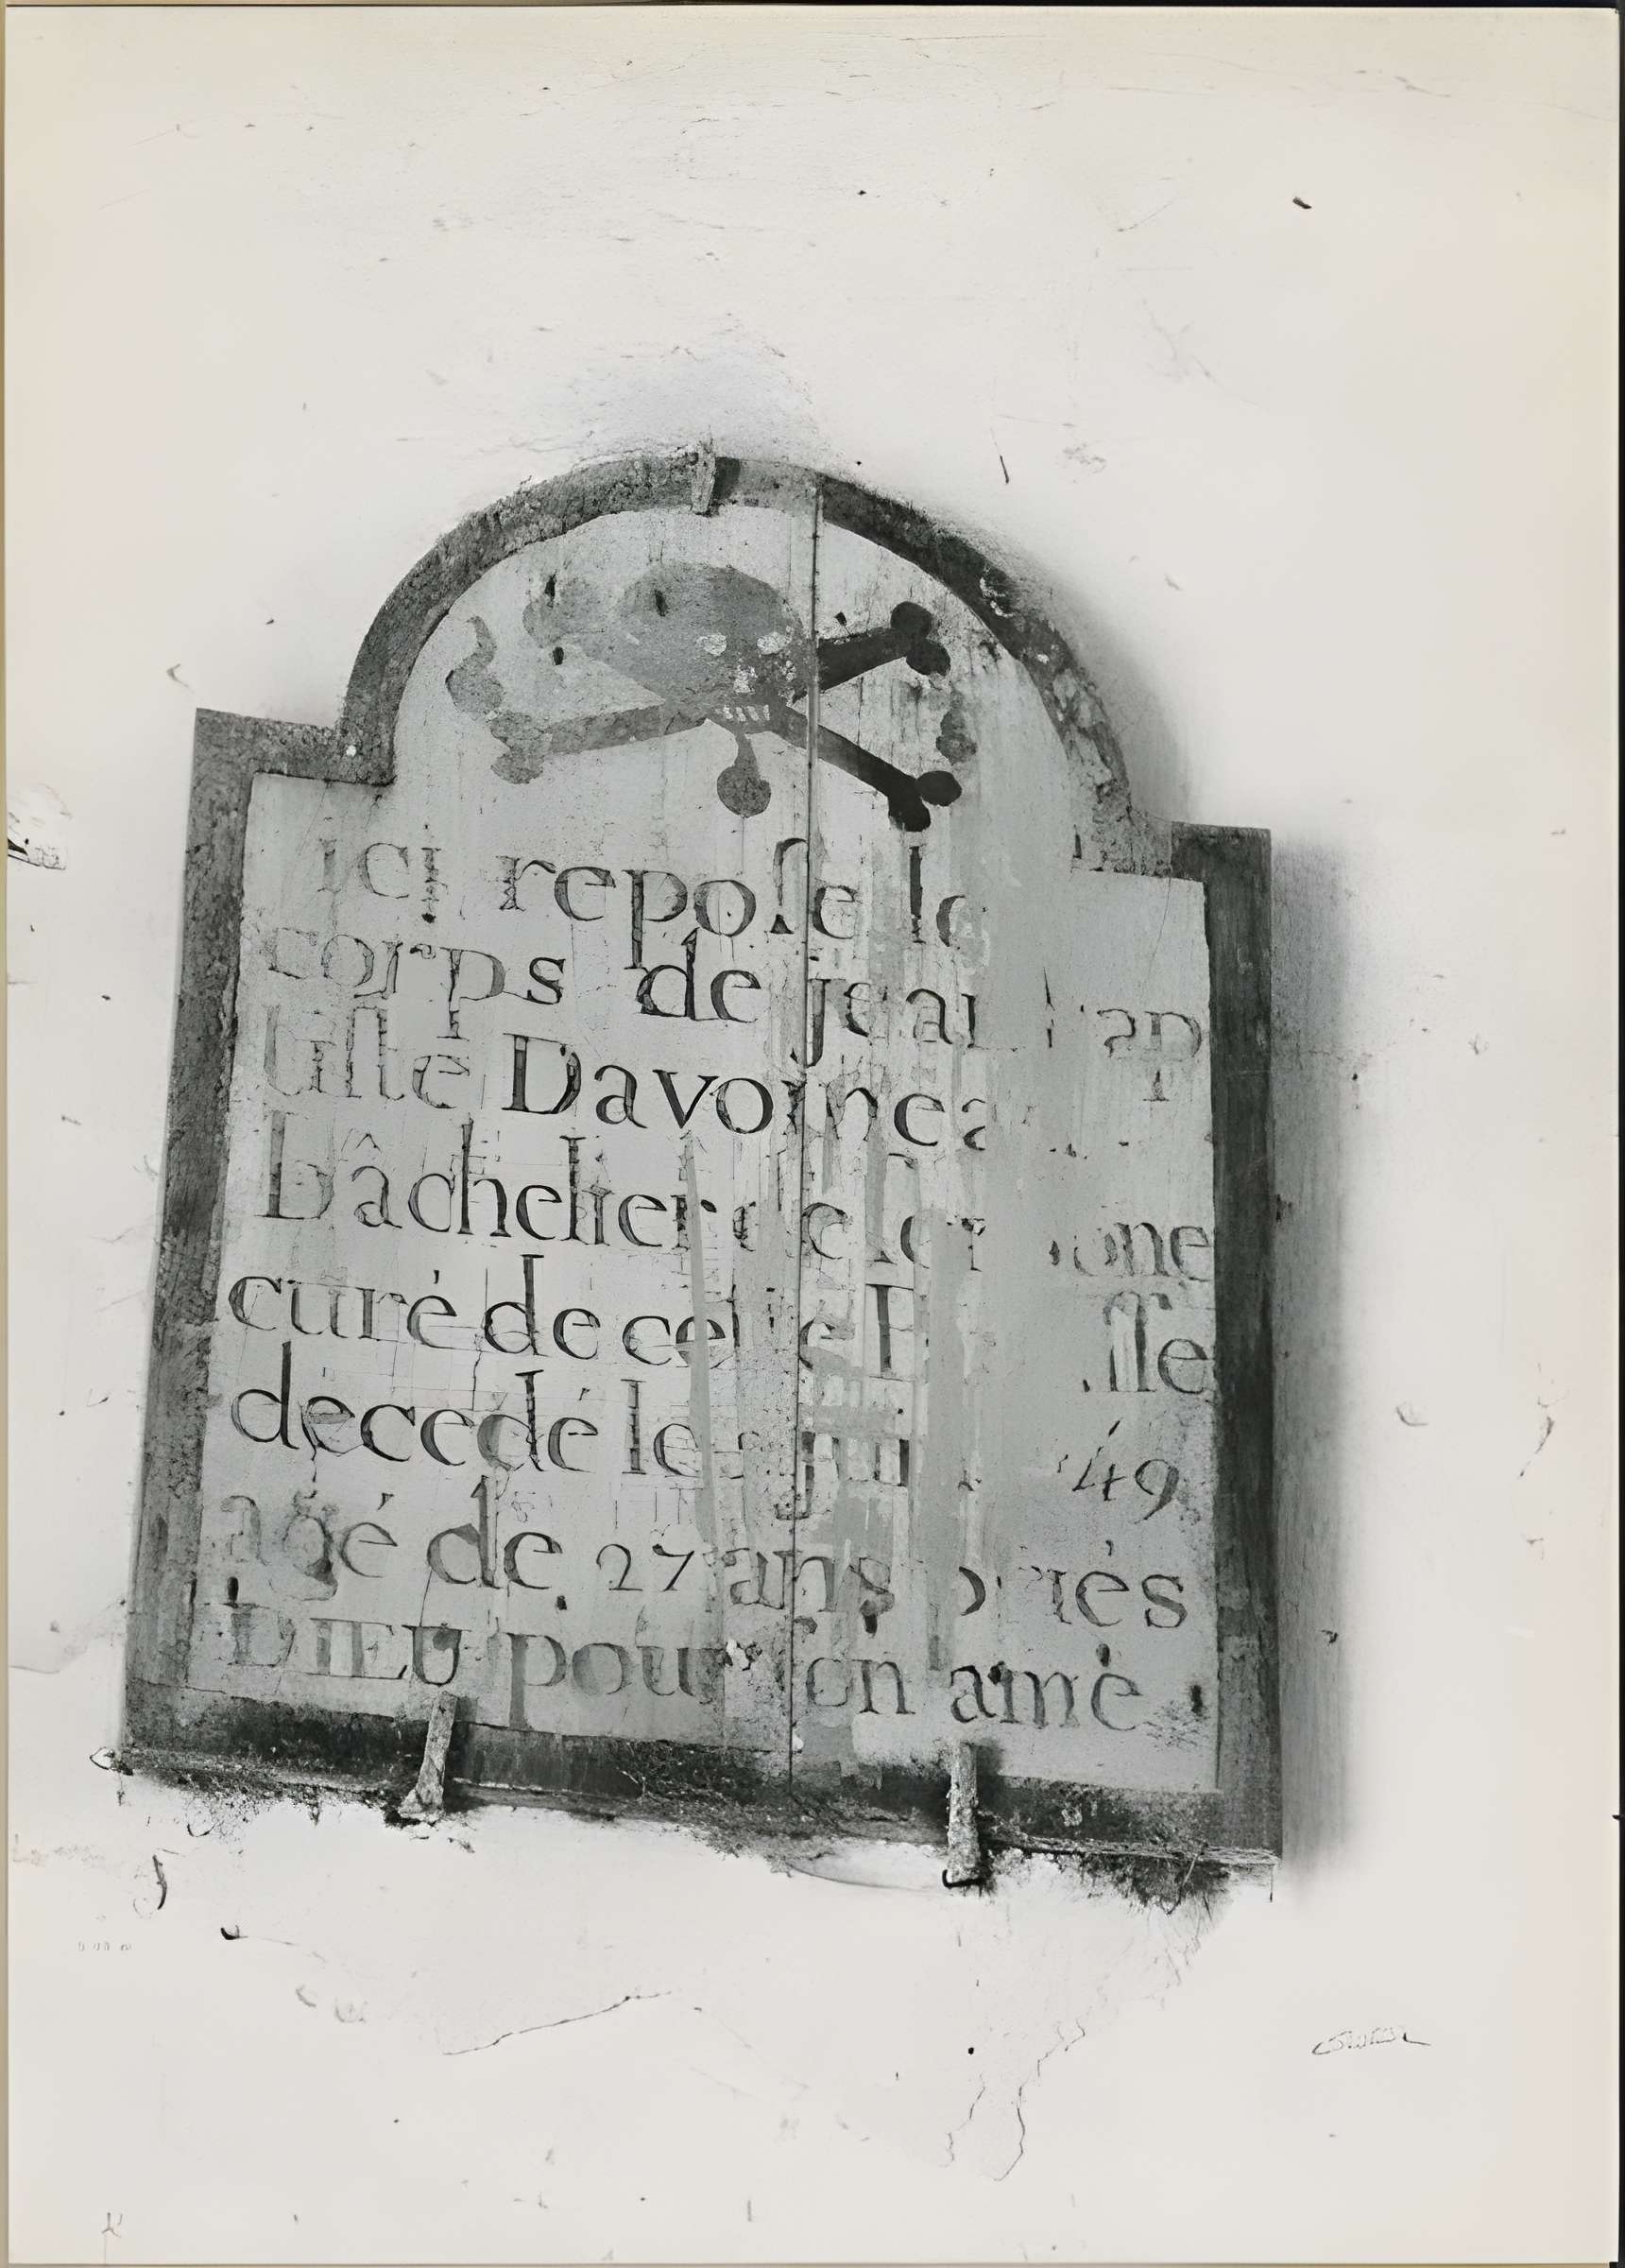 ici repose le
corps de jean Bap
tiste Davoinea
Bâchelier de
curé de cette
décédé le 49
agé de 27 ans priés
DIEU pour son ame